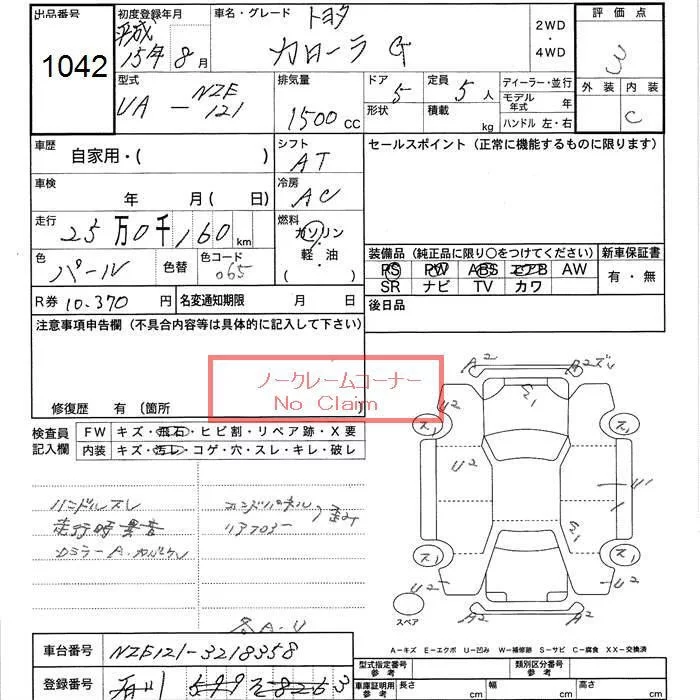 出品番号 初度登録年月 車名・グレード トヨタ 評価点
1042 平成 15年 8月 カローラ G 2WD・4WD 3
型式 UA-NZE121 排気量 1500cc ドア 5 定員 5人 ディーラー・並行 外装 内装
形状 積載 kg モデル年式 年 ハンドル 左・右 C
車歴 自家用・( ) シフト AT セールスポイント(正常に機能するものに限ります)
車検 年 月( 日) 冷房 AC
走行 25万0千160km 燃料 ガソリン・軽油 ( )
色 パール 色替 色コード 065 装備品(純正品に限り○をつけてください) 新車保証書
PS PW ABS エアB AW 有・無
SR ナビ TV カワ
R券 10.370円 名変通知期限 月 日 後日品
注意事項申告欄(不具合内容等は具体的に記入して下さい)
ノークレームコーナー
No Claim
修復歴 有(箇所 )
検査員記入欄 FW キズ・飛石・ヒビ割・リペア跡・X要
内装 キズ・汚レ・コゲ・穴・スレ・キレ・破レ
A2 A2 ズレ
U2 S1 U2
ス1 ス1
U2 U1
S1
ス1 ス1
U2 U2
A2 A2
ハンドルスレ
走行時異音
各A・U
スペア
A-キズ E-エクボ U-凹み W-補修跡 S-サビ C-腐食 XX-交換済
車台番号 NZE121-3218358 型式指定番号 類別区分番号
登録番号 石川 車庫証明用参考 長さ cm 幅 cm 高さ cm